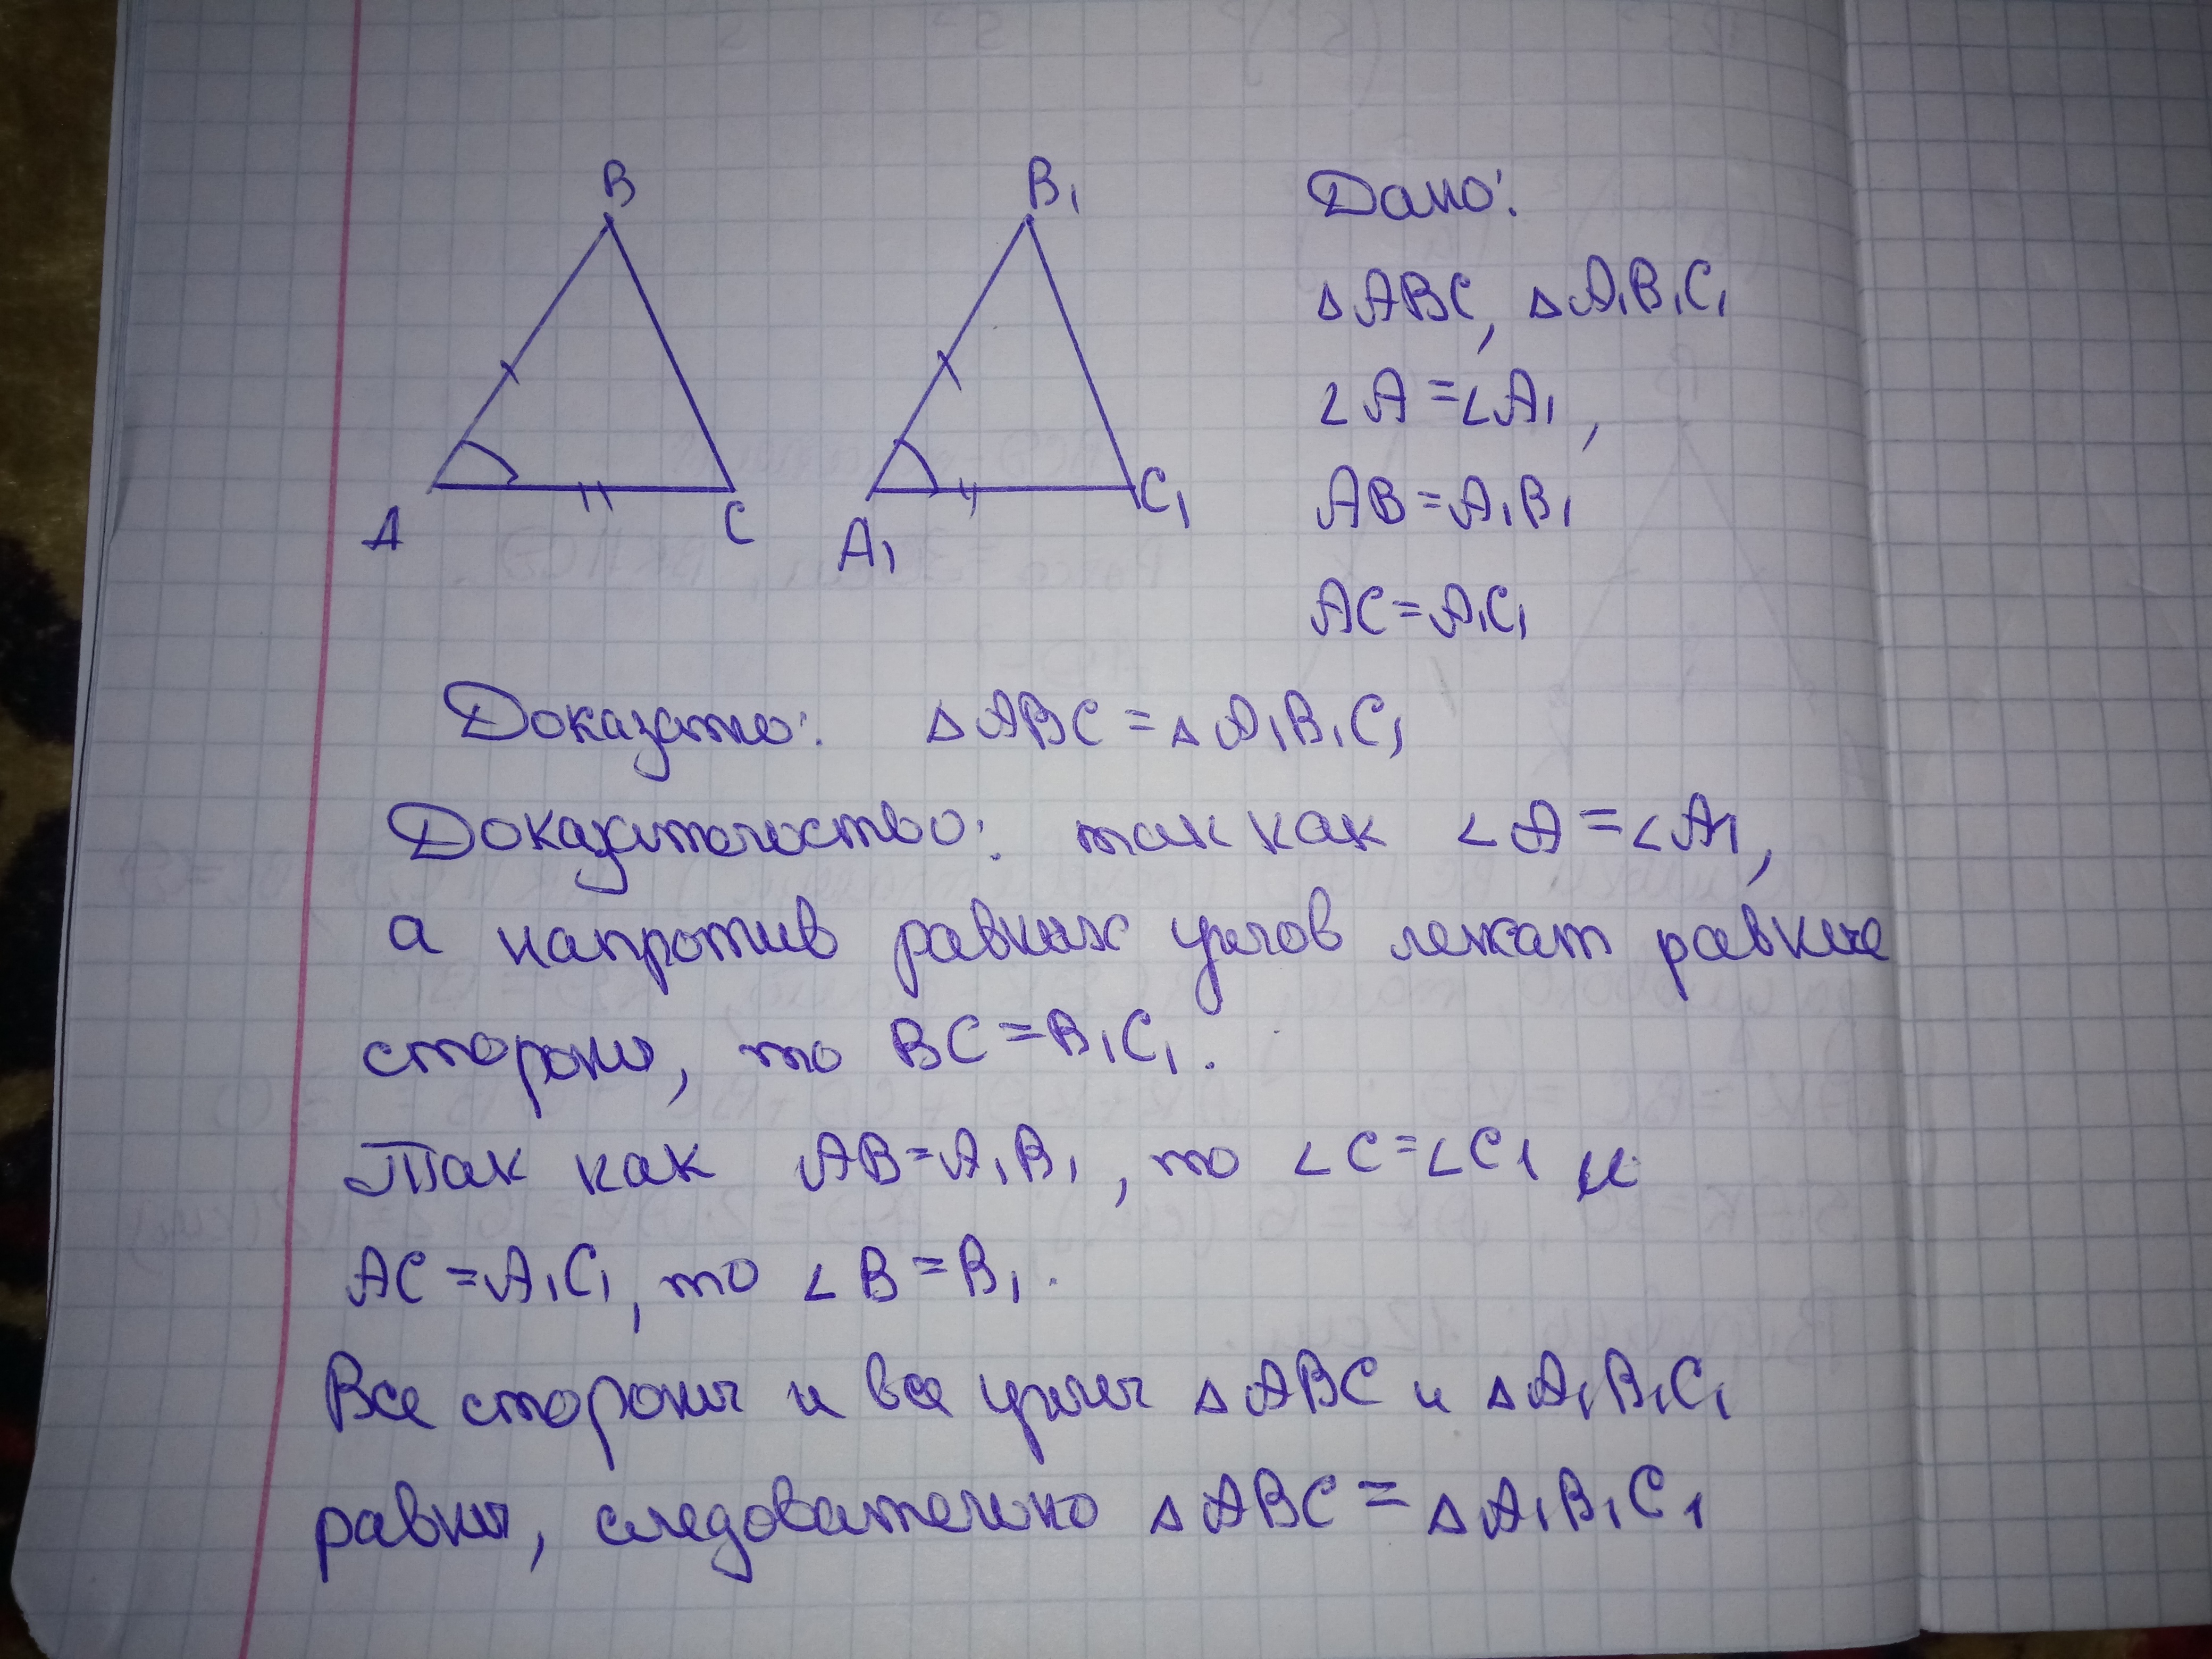 B
B₁
A
C
A₁
C₁
Дано:
△ABC, △A₁B₁C₁
∠A=∠A₁,
AB=A₁B₁
AC=A₁C₁
Доказать: △ABC=△A₁B₁C₁
Доказательство: так как ∠A=∠A₁,
а напротив равных углов лежат равные
стороны, то BC=B₁C₁.
Так как AB=A₁B₁, то ∠C=∠C₁ и
AC=A₁C₁, то ∠B=B₁.
Все стороны и все углы △ABC и △A₁B₁C₁
равны, следовательно △ABC=△A₁B₁C₁